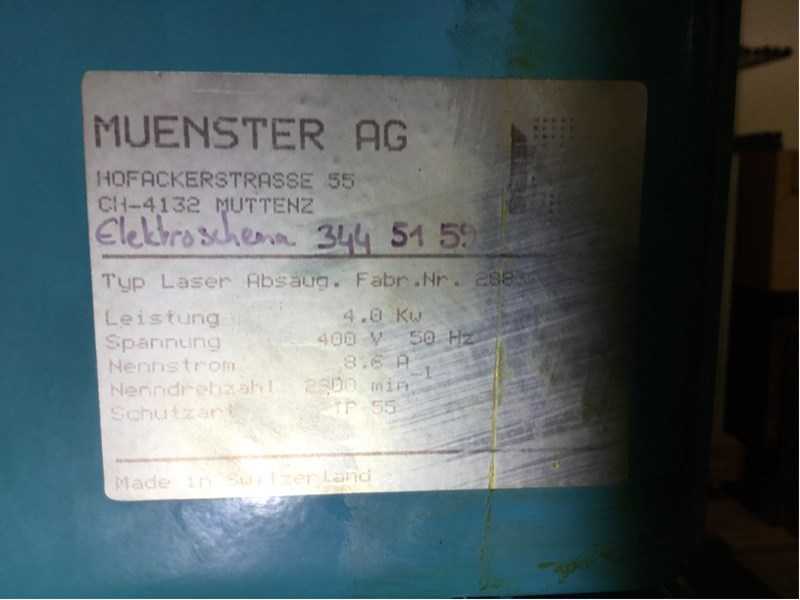 MUENSTER AG
HOFACKERSTRASSE 55
CH-4132 MUTTENZ
Elektroschema 344 51 59
Typ Laser Absaug. Fabr.Nr.
Leistung 4.0 Kw
Spannung 400 V 50 Hz
Nennstrom 8.6 A
Nenndrehzahl min -1
Schutzart IP 55
Made in Switzerland